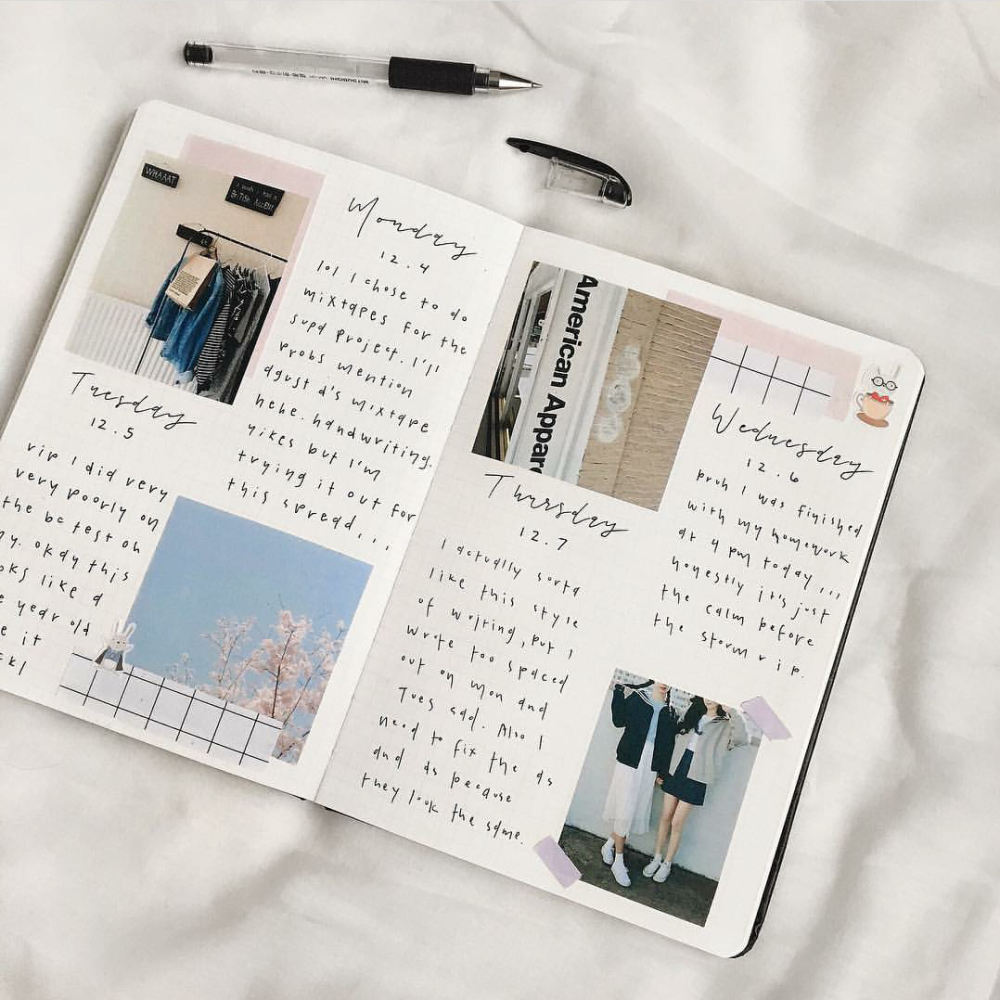 WHAAAT
I wish I had a
British Accent
Monday
12.4
lol I chose to do
mixtapes for the
supa project. I'll
probs mention
agust d's mixtape
hehe. handwriting.
yikes but I'm
trying it out for
this spread...
Tuesday
12.5
rip I did very
very poorly on
the bc test oh
my. okay this
oks like a
e year old
e it
ck!
American Appar
Wednesday
12.6
bruh I was finished
with my homework
at 9 pm today...
honestly it's just
the calm before
the storm rip.
Thursday
12.7
I actually sorta
like this style
of writing, but I
wrote too spaced
out on Mon and
Tues sad. Also I
need to fix the ds
and as because
they look the same.